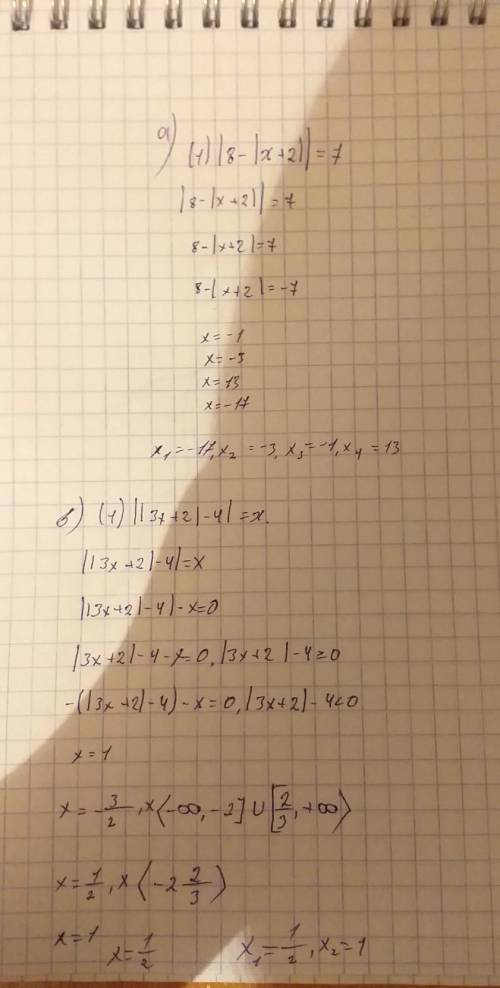 а) (1) |8-|x+2||=7
|8-|x+2||=7
8-|x+2|=7
8-|x+2|=-7
x=-1
x=-3
x=13
x=-17
x₁=-17, x₂=-3, x₃=-1, x₄=13
в) (1) ||3x+2|-4|=x.
||3x+2|-4|=x
||3x+2|-4|-x=0
|3x+2|-4-x=0, |3x+2|-4≥0
-(|3x+2|-4)-x=0, |3x+2|-4<0
x=1
x=-3/2, x⟨-∞, -2]∪[2/3, +∞⟩
x=1/2, x⟨-2 2/3⟩
x=1 x=1/2 x₁=1/2, x₂=1